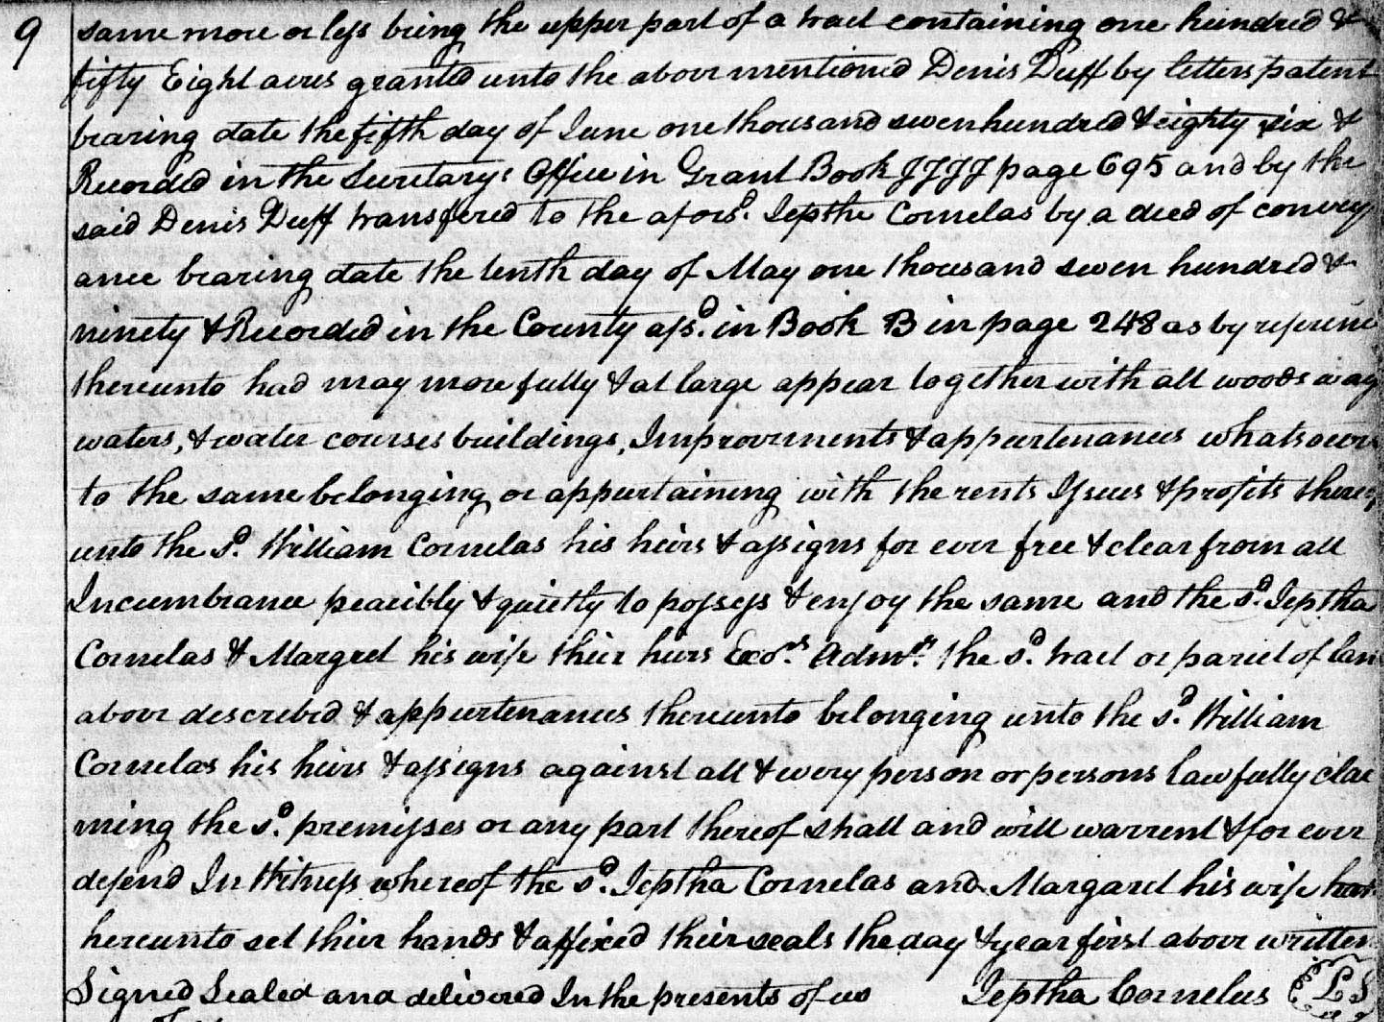 9
same more or less being the upper part of a tract containing one hundred &
fifty Eight acres granted unto the above mentioned Denis Duff by letters patent
bearing date the fifth day of June one thousand seven hundred & eighty six &
Recorded in the Secretarys Office in Grant Book JJJJ page 695 and by the
said Denis Duff transfered to the afors.d Jepthe Cornelas by a deed of convey
ance bearing date the tenth day of May one thousand seven hundred &
ninety & Recorded in the County afs.d in Book B in page 248 as by referenc
thereunto had may more fully & at large appear together with all woods way
waters, & water courses buildings, Improvements & appurtenances whatsoever
to the same belonging or appurtaining with the rents Issues & profits thereof
unto the s.d William Cornelas his heirs & assigns for ever free & clear from all
Incumbrance peacibly & quietly to possess & enjoy the same and the s.d Jeptha
Cornelas & Margret his wife their heirs Exo.rs Adm.rs the s.d tract or parcel of lan
above described & appurtenances thereunto belonging unto the s.d William
Cornelas his heirs & assigns against all & every person or persons lawfully clai
ming the s.d premisses or any part thereof shall and will warrent & for ever
defend In Witness whereof the s.d Jeptha Cornelas and Margaret his wife have
hereunto set their hands & affixed their seals the day & year first above written
Signed Sealed and delivered In the presents of us Jeptha Cornelus L S
of us